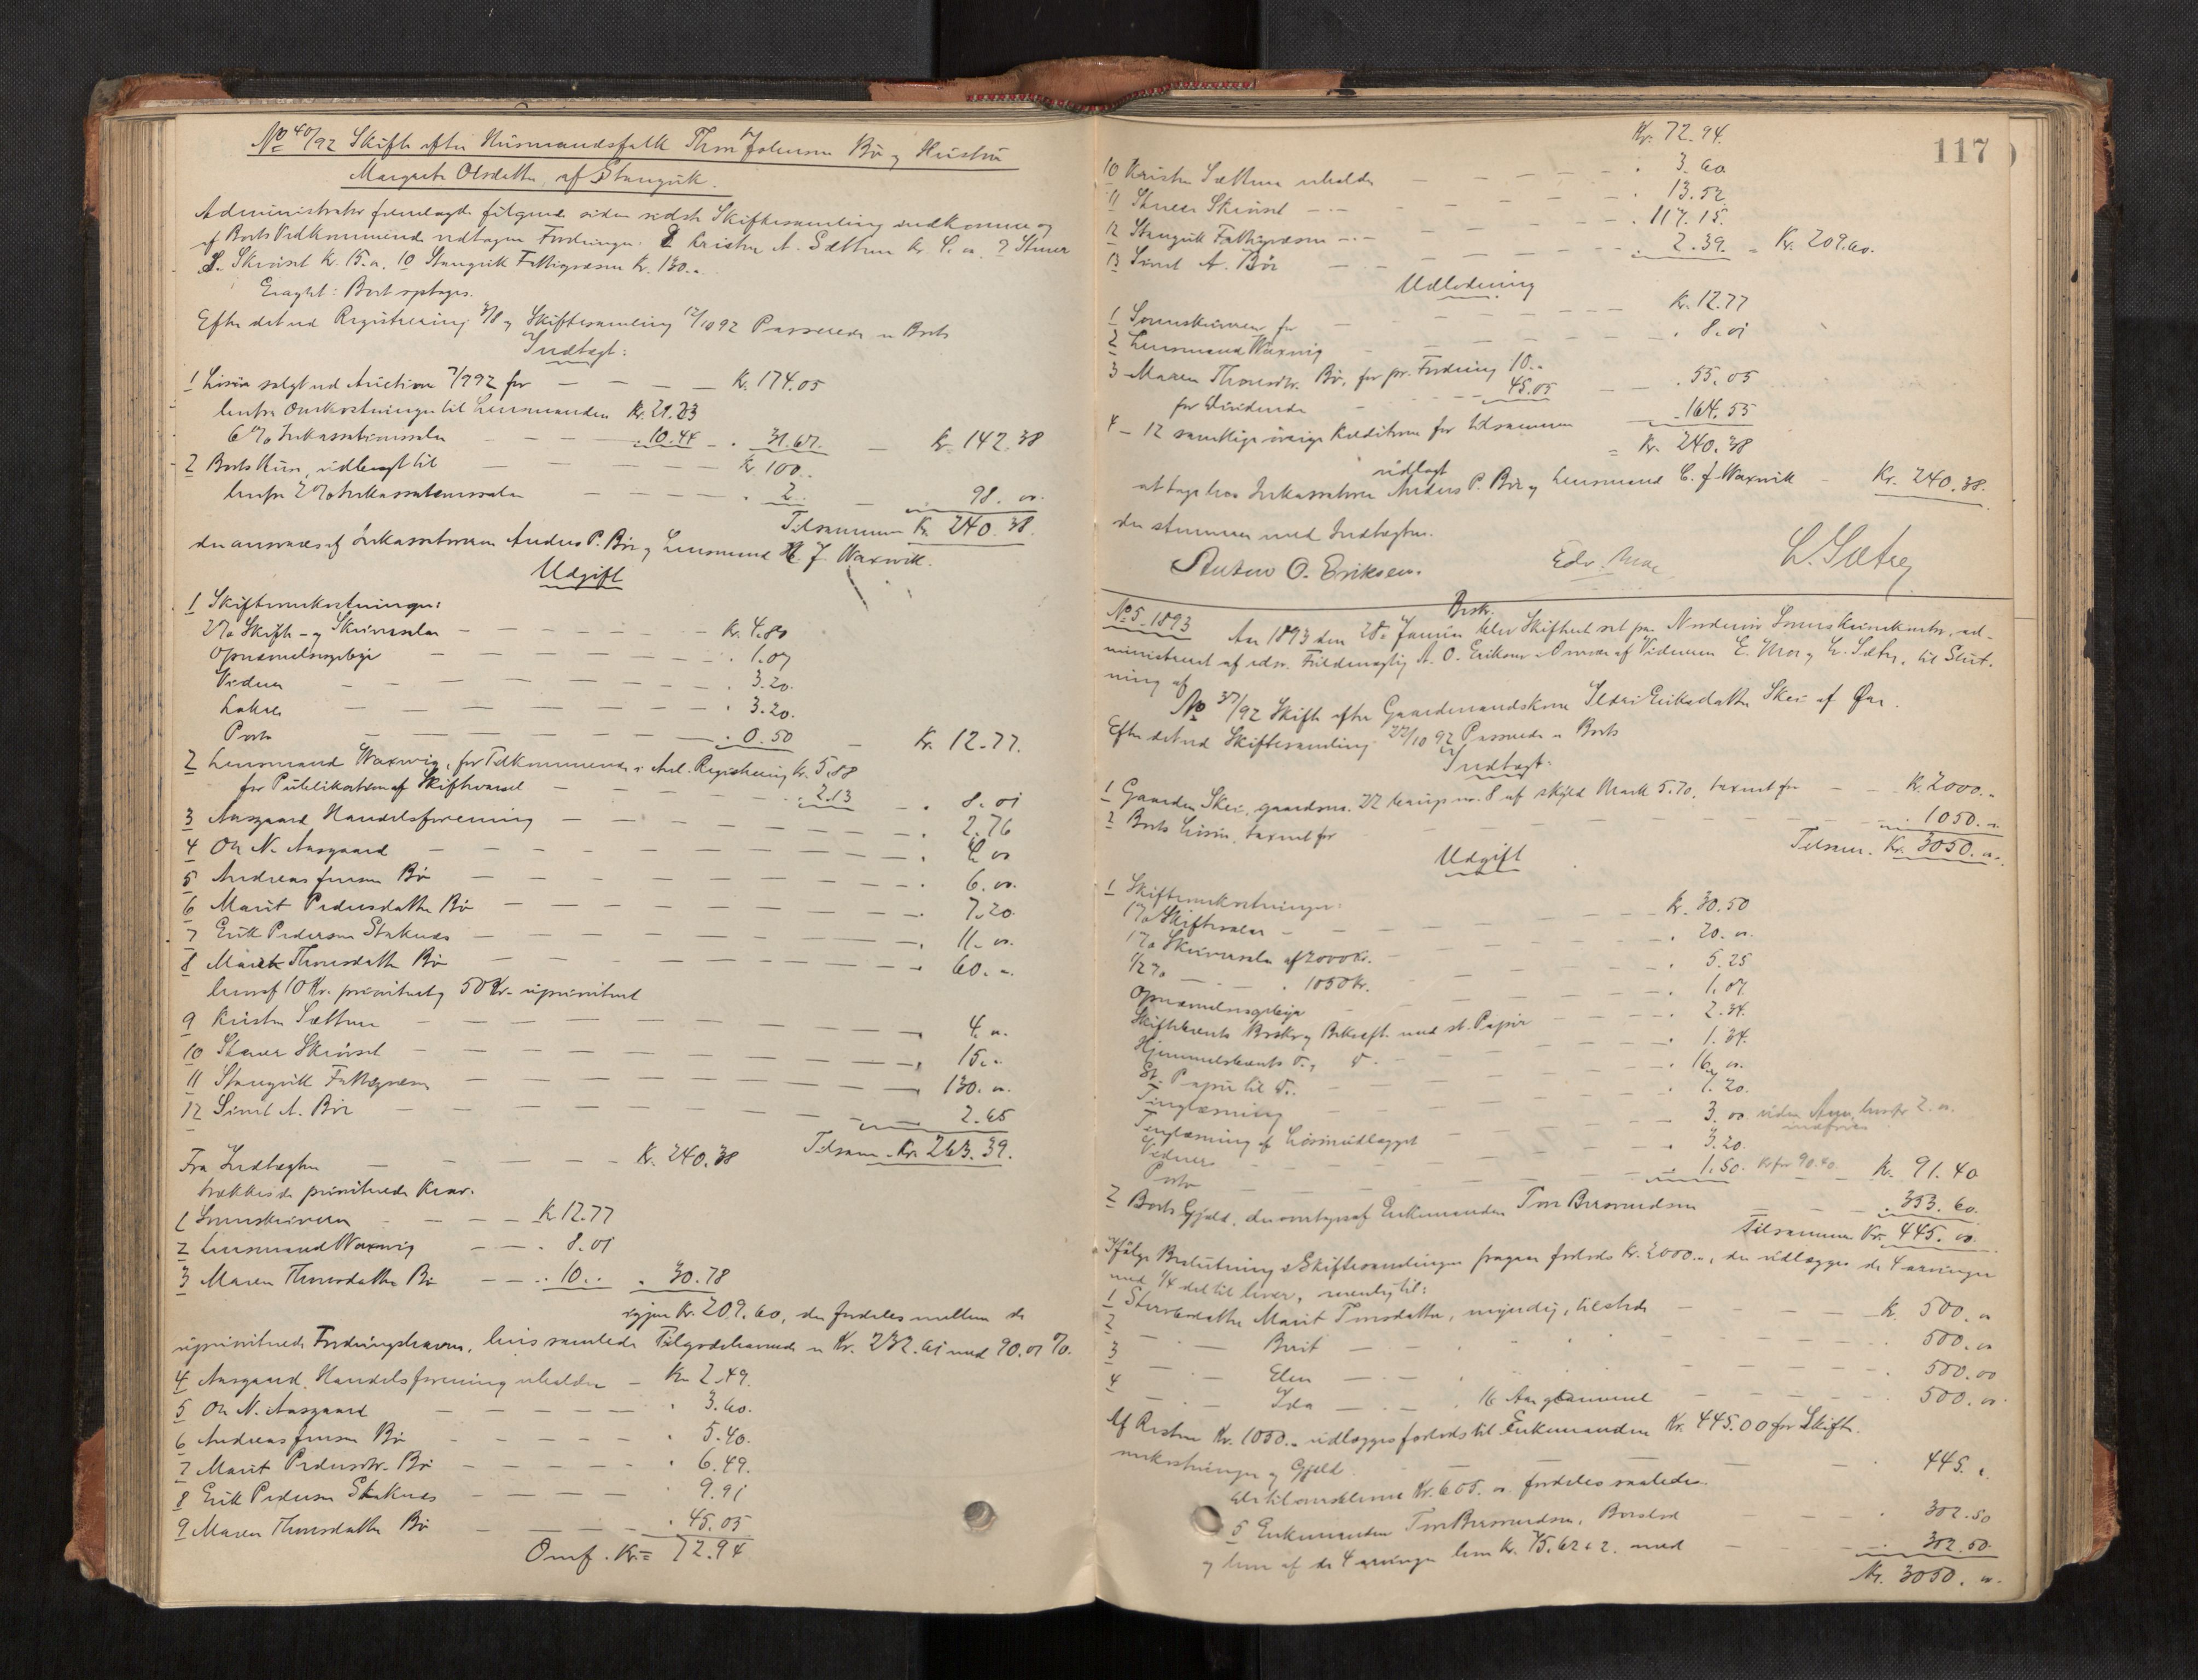 No 40/92 Skifte efter Husmandsfolk Thor Johnsen Bø og Hustru
Margrete Olsdatter af Stangvik.
Administrator fremlagde følgende siden sidste Skiftesamling indkomne og
af Boets Vedkommende vedtagne Fordringer: Kristen A. Sættem Kr. 4. 00. 9 Stener
S. Skrøvset Kr. 15.00. 10 Stangvik Fattigvæsen Kr. 130..
Eragtet: Boet optages.
Efter det ved Registrering 3/8 og Skiftesamling 12/10 92 Passerede er Boets
Indtægt:
1 Løsøre solgt ved Auktion 7/9 92 for — — — — Kr. 174.05
herfra Omkostninger til Lensmanden Kr. 21.23
6% Inkassationssalær — — — . 10.44 — . 31.67 — Kr. 142.38
2 Boets Huse, udbragt til — — — — Kr. 100..
herfra 2% Inkassationssalær — — — — . 2. — 98. 00.
Tilsammen Kr. 240.38.
der ansvares af Inkassatorerne Anders P. Bøe og Lensmand C. J. Waxvik.
Udgift
1 Skifteomkostninger:
2% Skifte- og Skriversalær — — — — Kr. 4.80
Opnævnelsesgebyr — — — — . 1.07
Vidner — — — — . 3.20.
Lokale — — — — . 3.20.
Porto — — — — . 0.50 — Kr. 12.77.
2 Lensmand Waxvig, for Tilkommende i Anl. Registrering Kr. 5.88
for Publikation af Skiftevarsel — — — . 2.13 — . 8.01
3 Aasgaard Handelsforening — — — — . 2.76
4 Ole N. Aasgaard — — — — . 4. 00
5 Andreas Jensen Bø — — — — . 6.00.
6 Marit Pedersdatter Bø — — — — . 7.20.
7 Erik Pedersen Staknes — — — — . 11. 00.
8 Maren Thorsdatter Bø — — — — . 60..
heraf 10 Kr. privilert og 50 Kr. uprivilert
9 Kristen Sættem — — — — . 4. 00.
10 Stener Skrøvset — — — — . 15..
11 Stangvik Fattigvæsen — — — — . 130. 00.
12 Sivert A. Bøe — — — — 2.65
Fra Indtægten — — — Kr. 240.38 Tilsam. Kr. 263.39.
trækkes de privilerede Krav:
1 Sorenskriveren — — — Kr. 12.77
2 Lensmand Waxvig — — . 8.01
3 Maren Thorsdatter Bø — — . 10.. . 30.78
igjen Kr. 209.60, der fordeles mellem de
uprivilerede Fordringshavere, hvis samlede Tilgodehavende er Kr. 232.61 med 90.01 %.
4 Aasgaard Handelsforening erholder — Kr. 2.49.
5 Ole N. Aasgaard — — — . 3.60.
6 Andreas Jensen Bø — — — . 5.40.
7 Marit Pedersdr. Bø — — — . 6.49.
8 Erik Pedersen Staknes — — — . 9.91
9 Maren Thorsdatter Bø — — — . 45.05
Omf. Kr. = 72.94
117
Kr. 72.94.
10 Kristen Sættem erholder — — — . 3.60
11 Stener Skrøvset — — — . 13.52.
12 Stangvik Fattigvæsen — — — . 117.15.
13 Sivert A. Bøe — — — . 2.39. = Kr. 209.60.
Udlodning
1 Sorenskriveren for — — — Kr. 12.77
2 Lensmand Waxvig — — — . 8.01
3 Maren Thorsdtr. Bø, for pr. Fordring 10..
for Dividende — — — 45.05 — — . 55.05
4 – 12 samtlige øvrige Kreditorer for tilsammen . 164.55
= Kr. 240.38
udlagt
at tage hos Inkassatorerne Anders P. Bøe og Lensmand C. J. Waxvik — Kr. 240.38.
der stemmer med Indtægten.
Anton O. Eriksen. Edv. Moe L. Sæter
No 5. 1893 Aar 1893 den 28. Januar blev Skifteret sat paa Nordmør Sorenskriverkontor, ad-
ministreret af edsv. Fuldmægtig A. O. Eriksen i Overvær af Vidnerne E. Moe og L. Sæter, til Slut-
ning af
No 37/92 Skifte efter Gaardmandskone Sildri Eriksdatter Skei af Øre.
Efter det ved Skiftesamling 22/10 92 Passerede er Boets
Indtægt:
1 Gaarden Skei, gaardsno. 22 brugsno. 8 af skyld Mark 5.70, taxeret for — — Kr. 2000..
2 Boets Løsøre, taxeret for — — — — . 1050. 00
Tilsam. Kr. 3050. 00.
Udgift
1 Skifteomkostninger:
1% Skiftesalær — — — Kr. 30.50
1% Skriversalær af 2000 Kr. — — . 20. 00.
1/2% — — . 1050 Kr. — — . 5.25
Opnævnelsesgebyr — — . 1.07.
Skiftebrevets Beskr. og Bekræft. med st. Papir — — . 2.34.
Hjemmelsbrevets do., do. — — . 1.34.
St. Papir til do. — — . 16. 00.
Tinglæsning — — . 1.20.
Tinglæsning af Løsøreudlægget — — . 3.00
Vidner — — . 3.20.
Porto — — . 1.50. Kr. 91.40
2 Boets Gjæld, der overtages af Enkemanden Tore Bersvendsen — — . 353.60.
Tilsammen Kr. 445. 00.
Ifølge Beslutning i Skiftesamlingen fragaar forlods Kr. 2000.., der udlægges de 4 arvinger
med 1/4 del til hver, nemlig til:
1 Stervbodatter Marit Toresdatter, myndig, tilstede — — Kr. 500. 00
2 — — Berit — — 500. 00
3 — — Elen — — 500.00
4 — — Ida — . 16 Aar gammel — — 500. 00.
Af Resten Kr. 1050.. udlægges forlods til Enkemanden Kr. 445.00 for Skifte-
omkostninger og Gjeld — — — 445. 00
Kr. 605. 00 fordeles saaledes:
5 Enkemanden Tore Bersvendsen, Boeslod — — . 302.50
og hver af de 4 arvinger Kr. 75.62 1/2. med — — . 302.50.
Kr. 3050. 00.